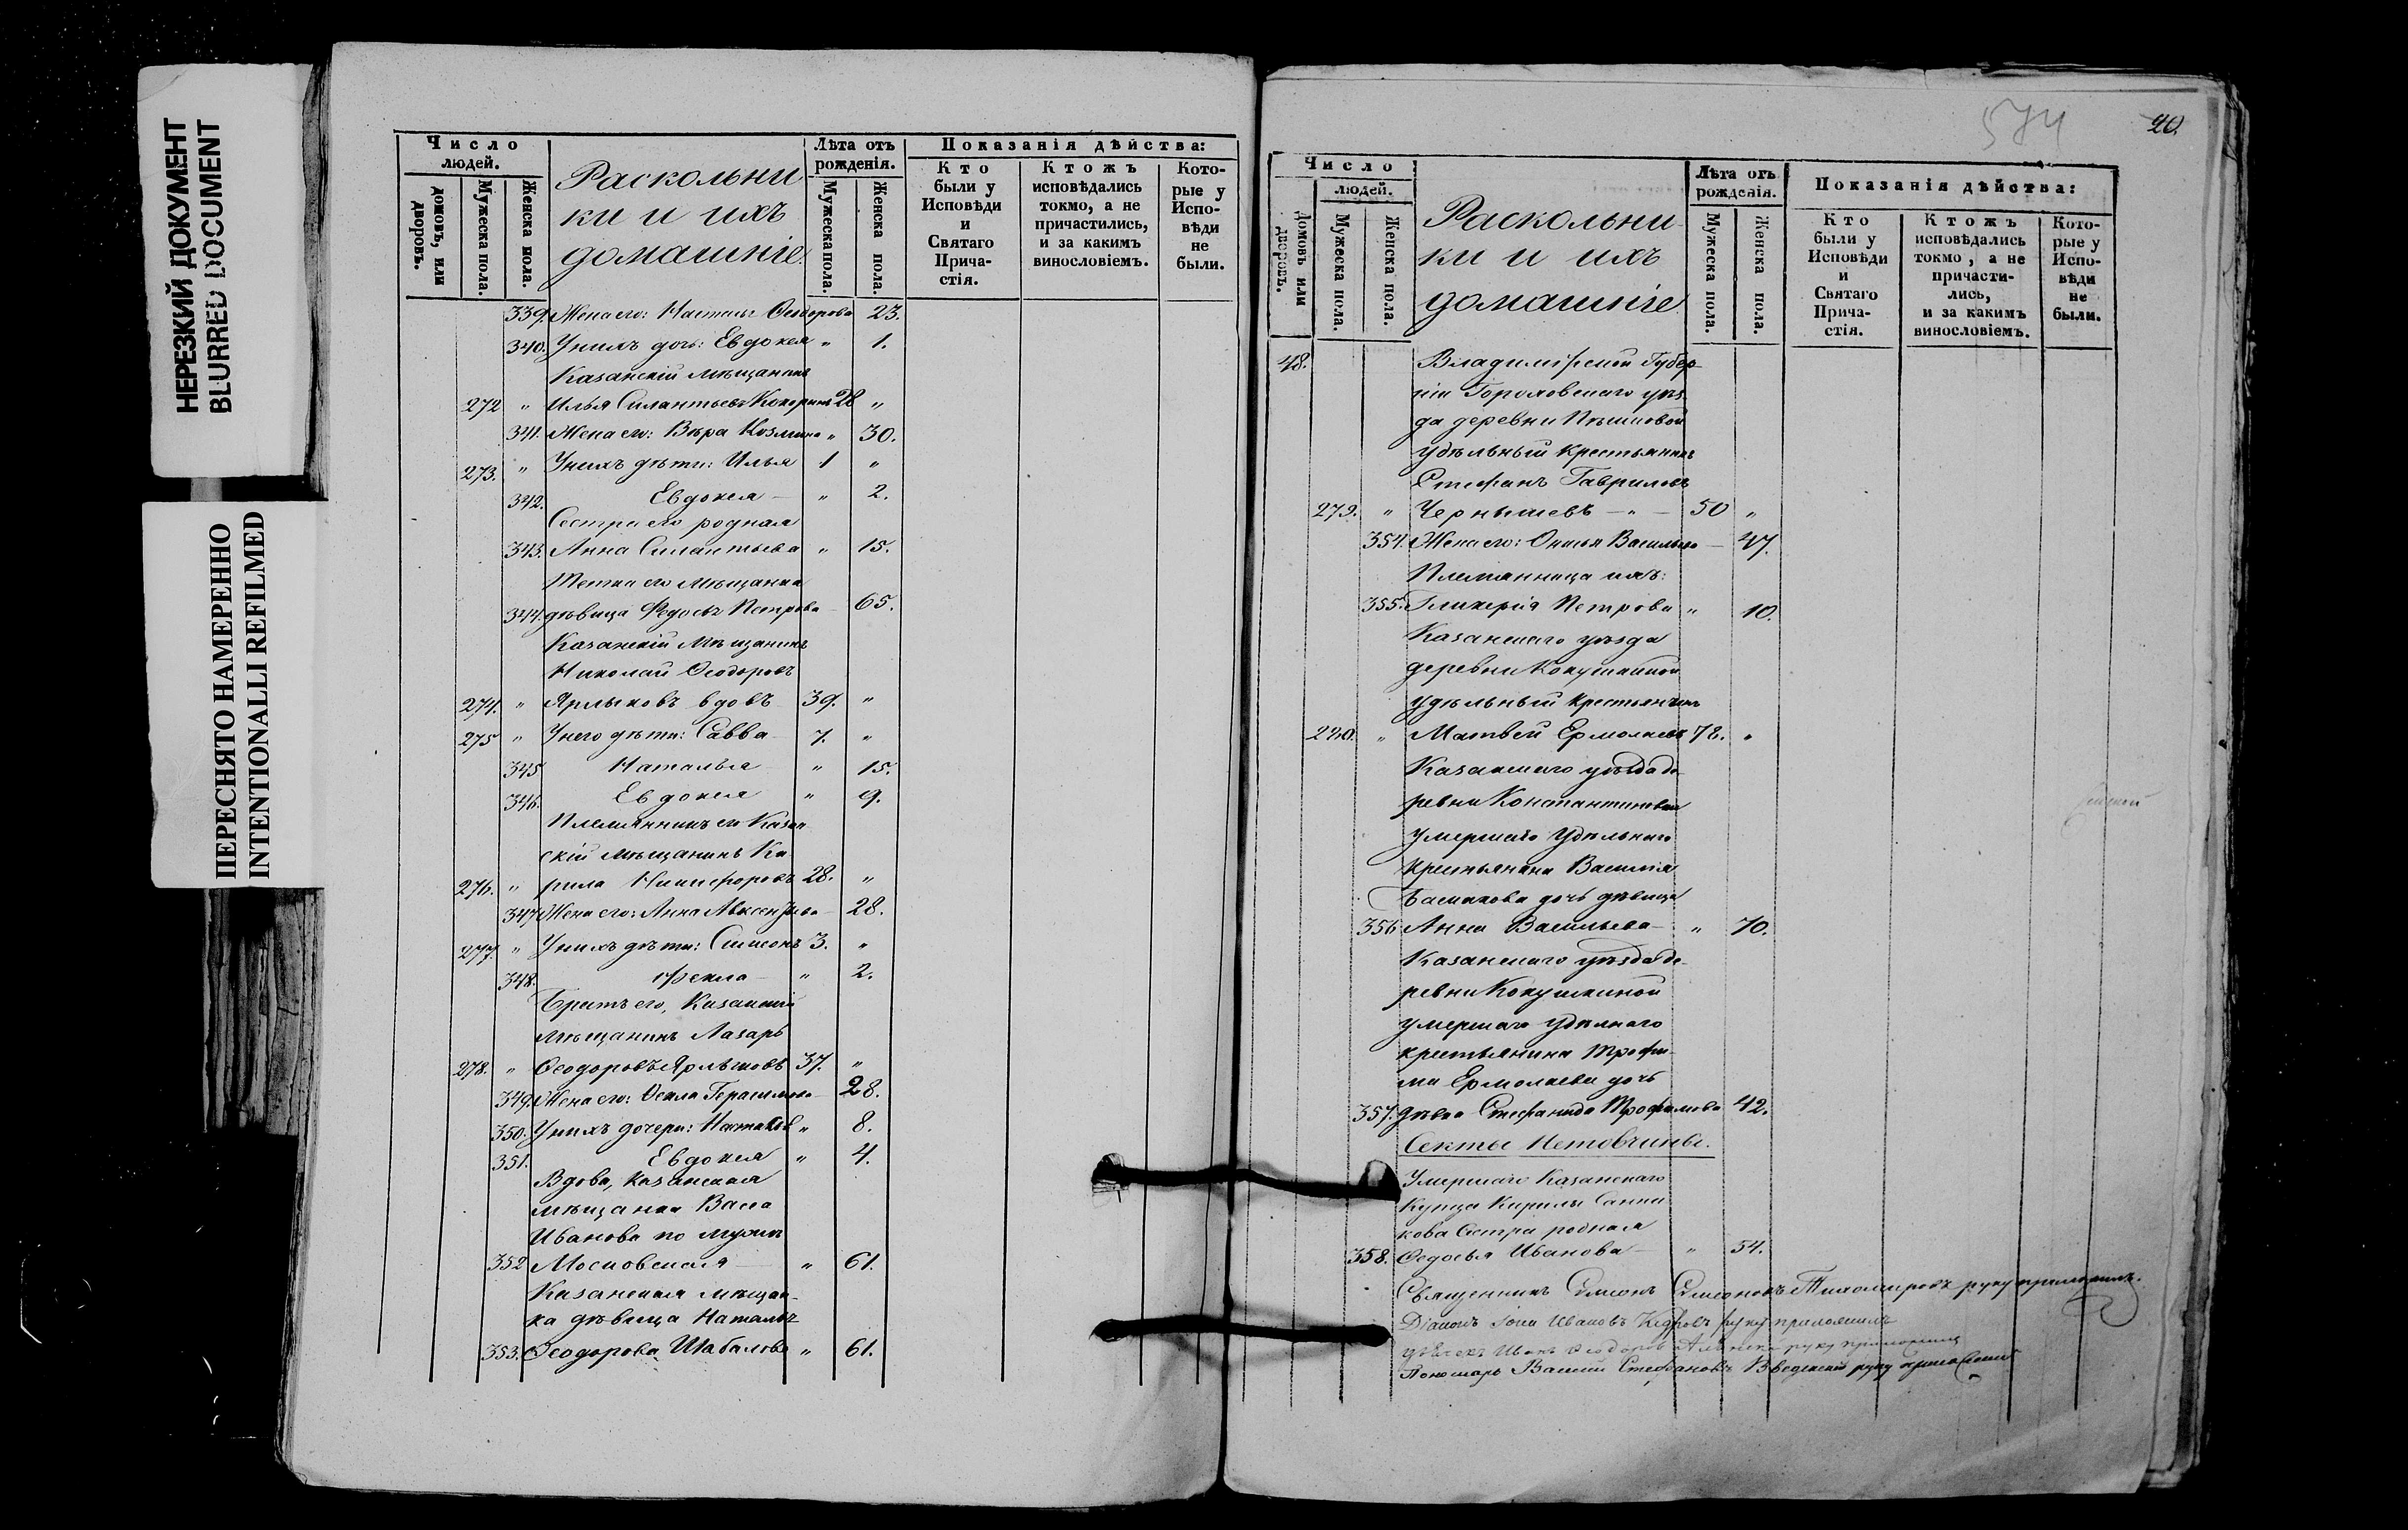 НЕРЕЗКИЙ ДОКУМЕНТ
BLURRED DOCUMENT
ПЕРЕСНЯТО НАМЕРЕННО
INTENTIONALLI REFILMED
Число людей.
домовъ, или дворовъ.
Мужеска пола.
Женска пола.
Раскольни
ки и ихъ
домашніе.
Лѣта отъ рожденія.
Мужеска пола.
Женска пола.
Показанія дѣйства:
Кто были у Исповѣди и Святаго Прича-стія.
Ктожъ исповѣдались токмо, а не причастились, и за какимъ винословіемъ.
Кото-рые у Испо-вѣди не были.
339. Жена его: Наталья Ѳеодорова 23.
340. У нихъ дочь: Евдокея " 1.
Казанскій мѣщанинъ
272 " Илья Силантьевъ Кокоринъ 28 "
341. Жена его: Вѣра Козмина " 30.
273. " У нихъ дѣти: Илья 1 "
342. Евдокея — " 2.
Сестра его родная
343. Анна Силантьева " 15.
Тетка его мѣщанка
344. дѣвица Федосья Петрова 65.
Казанскій Мѣщанинъ
Николай Ѳеодоровъ
274. " Ярлыковъ вдовъ 39. "
275 " У него дѣти: Савва 7. "
345 Наталья " 15.
346. Евдокея " 9.
Племянникъ его Казан
скій мѣщанинъ Ки
276. " рила Никифоровъ 28. "
347. Жена его: Анна Авксентьева 28.
277. " У нихъ дѣти: Симеонъ 3. "
348. Фекла — " 2.
Братъ его, Казанскій
мѣщанинъ Лазарь
278. " Ѳеодоровъ Ярлыковъ 37. "
349. Жена его: Ѳекла Герасимова 28.
350. У нихъ дочери: Наталья " 8.
351. Евдокея " 4.
Вдова, казанская
мѣщанка Васса
Иванова по мужѣ
352 Московская — " 61.
Казанская мѣщан-
ка дѣвица Наталья
353. Ѳеодорова Шабалова " 61.
574
20.
Число людей.
домовъ или дворовъ.
Мужеска пола.
Женска пола.
Раскольни
ки и ихъ
домашніе
Лѣта отъ рожденія.
Мужеска пола.
Женска пола.
Показанія дѣйства:
Кто были у Исповѣди и Святаго Прича-стія.
Ктожъ исповѣдались токмо, а не причасти-лись, и за какимъ винословіемъ.
Кото-рые у Испо-вѣди не были.
48. Владимірской Губер-
ніи Гороховскаго уѣз
да деревни
удѣльный крестьянинъ
Стефанъ Гавриловъ
279. " Чернышевъ — " — 50 "
354. Жена его: Васильева — 47.
Племянница ихъ:
355. Гликерія Петрова " 10.
Казанскаго уѣзда
деревни Кокушкиной
удѣльный крестьянинъ
280. " Матвей Ермолаевъ 78. "
Казанскаго уѣзда де-
ревни Константиновки
умершаго Удѣльнаго
крестьянина Василія
Басмакова дочь дѣвица
356 Анна Васильева — " 70.
Казанскаго уѣзда де-
ревни Кокушкиной
умершаго Удѣлнаго
крестьянина Трофи-
ма Ермолаева дочь
357. дѣвка Стефанида Трофимова 42.
Секты Нетовчины.
Умершаго Казанскаго
Купца Кирилы Санни
кова Сестра родная
358. Ѳедосья Иванова — " 54.
Священникъ Симеонъ Симеоновъ Тихомировъ руку приложилъ.
Діаконъ Іона Ивановъ Кедровъ руку приложилъ
Иванъ Ѳеодоровъ руку приложилъ
Пономарь Василій Стефановъ Введенскій руку приложилъ